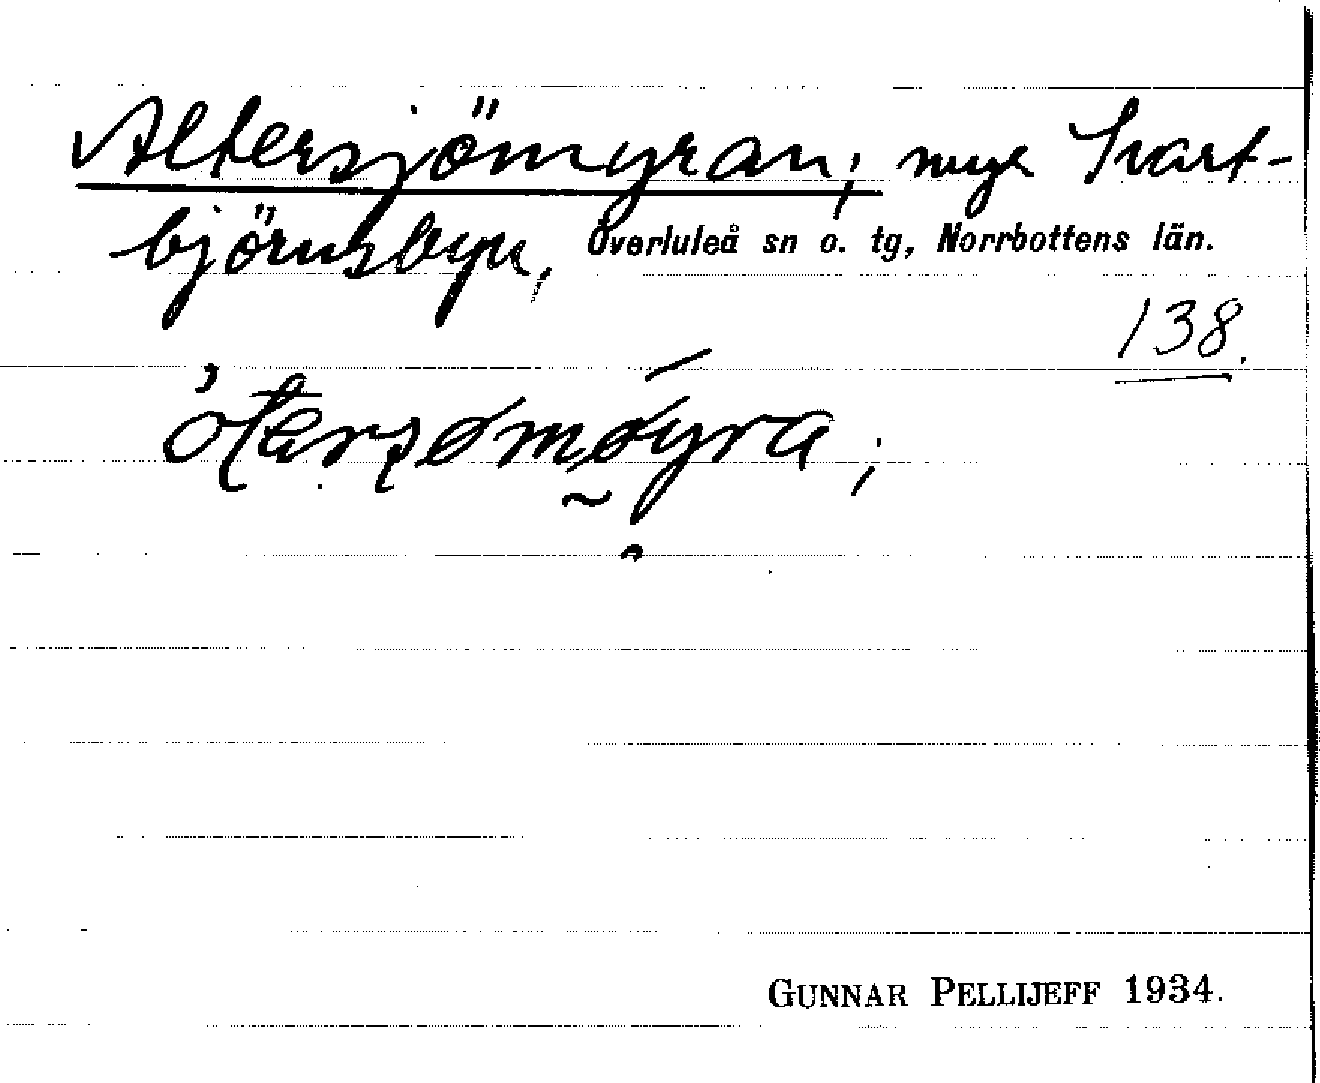 Altersjömyran; myr Svart-
björnsbyn, Överluleå sn o. tg, Norrbottens län.
138.
GUNNAR PELLIJEFF 1934.